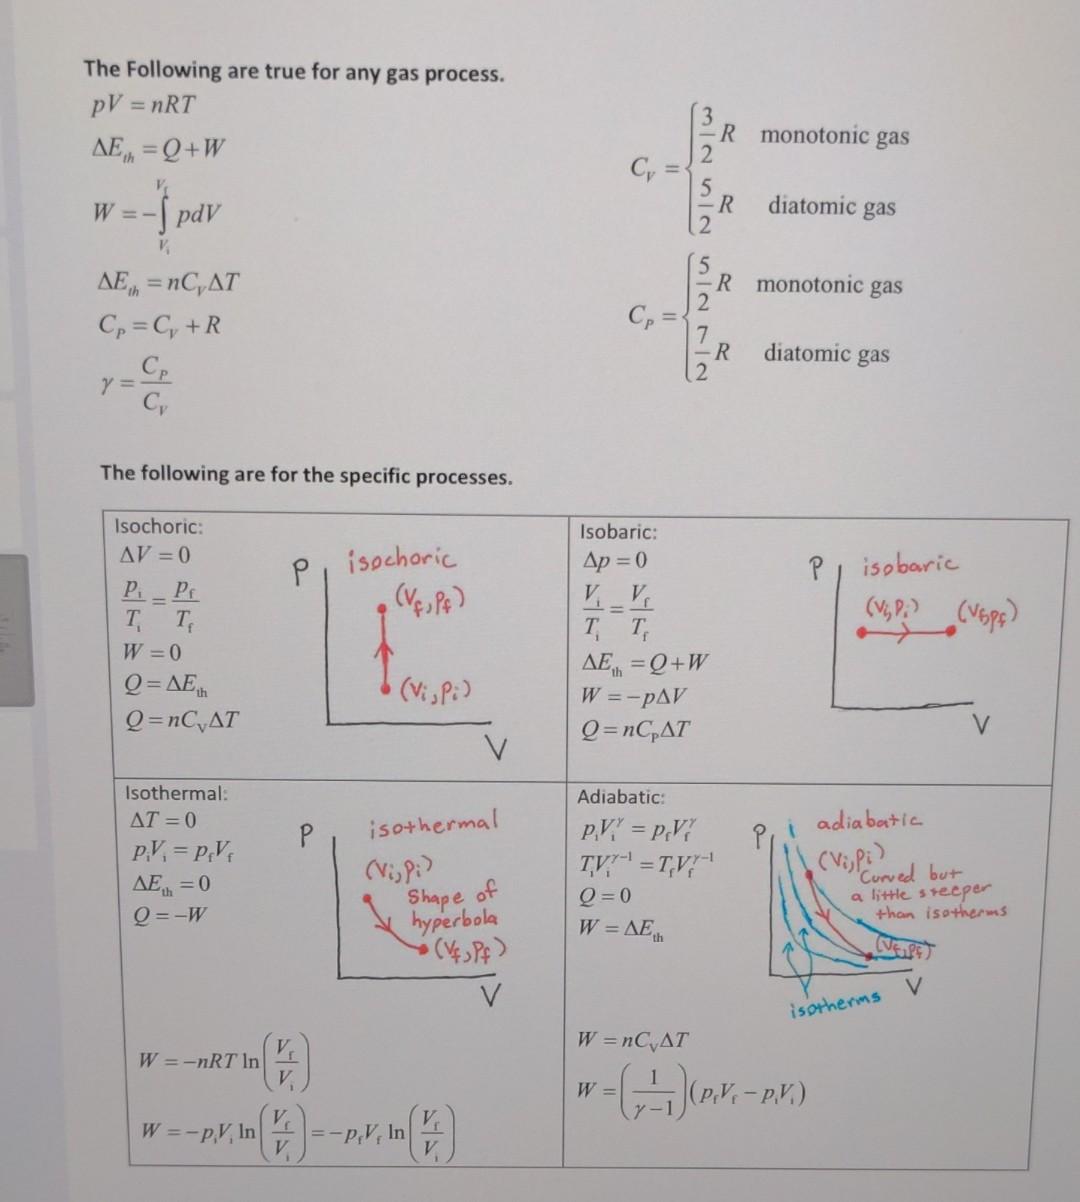 The Following are true for any gas process.
pV = nRT
ΔE_th = Q + W
W = −∫_{V_i}^{V_f} pdV
ΔE_th = nC_VΔT
C_P = C_V + R
γ = C_P / C_V
C_V = { 3/2 R monotonic gas
5/2 R diatomic gas
C_P = { 5/2 R monotonic gas
7/2 R diatomic gas
The following are for the specific processes.
Isochoric:
ΔV = 0
p_i / T_i = p_f / T_f
W = 0
Q = ΔE_th
Q = nC_VΔT
P
isochoric
(V_f, P_f)
(V_i, P_i)
V
Isobaric:
Δp = 0
V_i / T_i = V_f / T_f
ΔE_th = Q + W
W = −pΔV
Q = nC_PΔT
P
isobaric
(V_i, P_i) (V_f, P_f)
V
Isothermal:
ΔT = 0
p_iV_i = p_fV_f
ΔE_th = 0
Q = −W
P
isothermal
(V_i, P_i)
Shape of
hyperbola
(V_f, P_f)
V
W = −nRT ln(V_f / V_i)
W = −p_iV_i ln(V_f / V_i) = −p_fV_f ln(V_f / V_i)
Adiabatic:
p_iV_i^γ = p_fV_f^γ
T_iV_i^{γ−1} = T_fV_f^{γ−1}
Q = 0
W = ΔE_th
P
adiabatic
(V_i, P_i)
Curved but
a little steeper
than isotherms
(V_f, P_f)
V
isotherms
W = nC_VΔT
W = (1 / (γ−1)) (p_fV_f − p_iV_i)